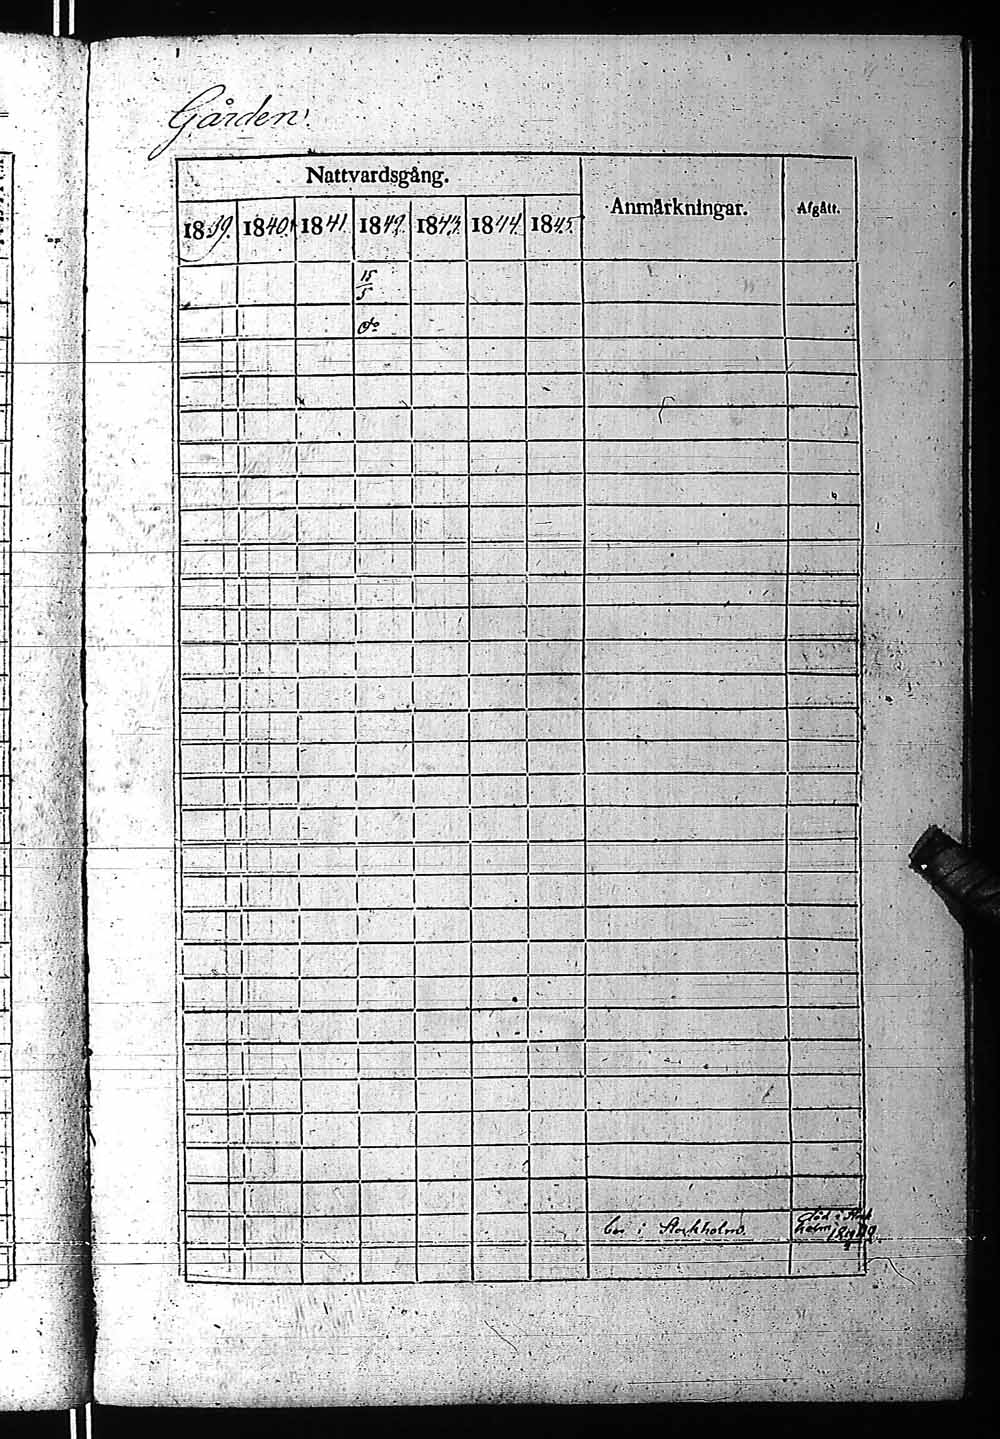 Gården.
Nattvardsgång.
Anmärkningar.
Afgått.
1839. 1840. 1841 1842. 1843. 1844 1845.
15/5
do
bor i Stockholm.
död i Stock
holm